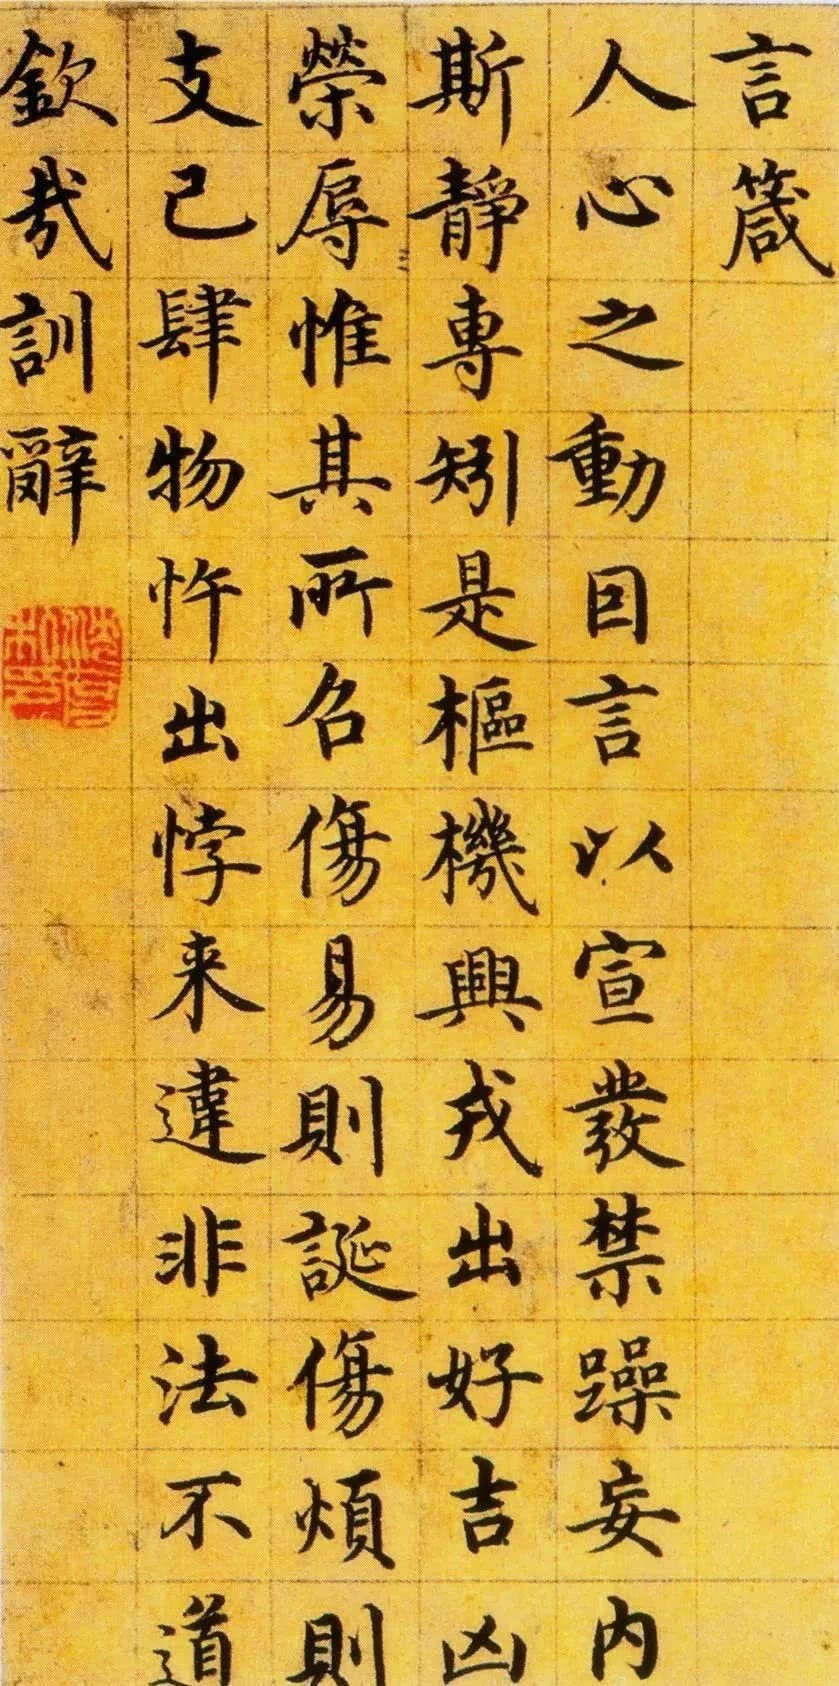 言箴
人心之動因言以宣發禁躁妄内
斯静專矧是樞機興戎出好吉凶
榮辱惟其所召傷易則誕傷煩則
支己肆物忤出悖来違非法不道
欽哉訓辭